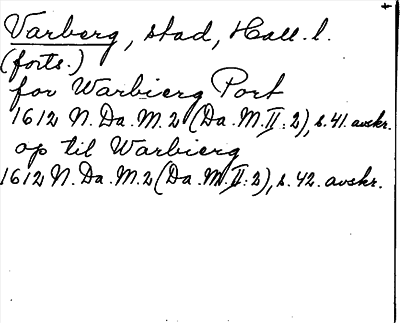 Varberg, stad, Hall. l.
(forts.)
for Warbierg Port
1612 N. Da. M. 2 (Da. M. II: 2), s. 41. avskr.
op til Warbierg
1612 N. Da. M. 2 (Da. M. II: 2), s. 42. avskr.